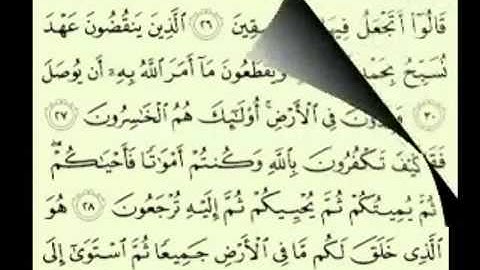 قَالُوٓا۟ أَتَجْعَلُ ٢٦ ٱلَّذِينَ يَنقُضُونَ عَهْدَ
نُسَبِّحُ وَيَقْطَعُونَ مَآ أَمَرَ ٱللَّهُ بِهِۦٓ أَن يُوصَلَ
٣٠ فِى ٱلْأَرْضِ ۚ أُو۟لَٰٓئِكَ هُمُ ٱلْخَٰسِرُونَ ٢٧
كَيْفَ تَكْفُرُونَ بِٱللَّهِ وَكُنتُمْ أَمْوَٰتًا فَأَحْيَٰكُمْ ۖ
ثُمَّ يُمِيتُكُمْ ثُمَّ يُحْيِيكُمْ ثُمَّ إِلَيْهِ تُرْجَعُونَ ٢٨ هُوَ
ٱلَّذِى خَلَقَ لَكُم مَّا فِى ٱلْأَرْضِ جَمِيعًا ثُمَّ ٱسْتَوَىٰٓ إِلَى